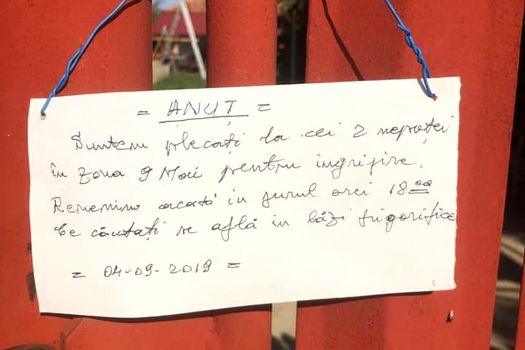 = ANUT =
Suntem plecați la cei 2 nepoței
în zona 9 Mai pentru îngrijire.
Revenim acasă în jurul orei 18 00
Ce căutați se află în lăzi frigorifice
= 04-09-2019 =